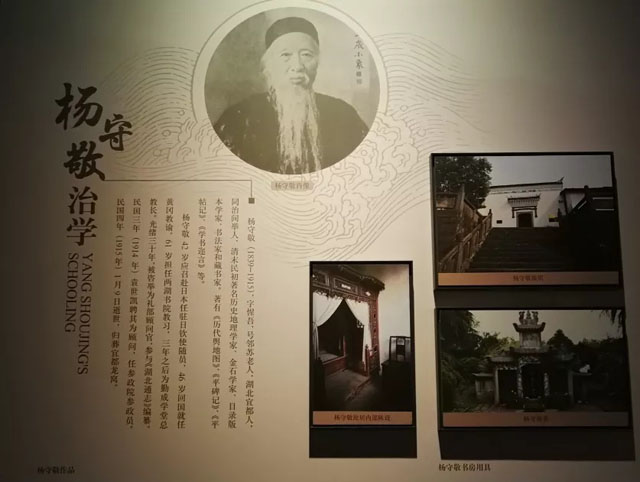 杨守敬治学
YANG SHOUJING'S
SCHOOLING
杨守敬肖像
杨守敬(1839—1915),字惺吾,号邻苏老人,湖北宜都人,
同治间举人,清末民初著名历史地理学家、金石学家、目录版
本学家、书法家和藏书家,著有《历代舆地图》《平碑记》《平
帖记》《学书迩言》等。
杨守敬 42 岁应召赴日本任驻日钦使随员,46 岁回国就任
黄冈教谕,61 岁担任两湖书院教习,三年之后为勤成学堂总
教长。光绪三十年,被铨举为礼部顾问官,参与《湖北通志》编纂。
民国三年(1914 年)袁世凯聘其为顾问,任参政院参政员。
民国四年(1915年)1月9日逝世,归葬宜都龙窝。
杨守敬故居
杨守敬故居内部陈设
杨守敬作品
杨守敬书房用具